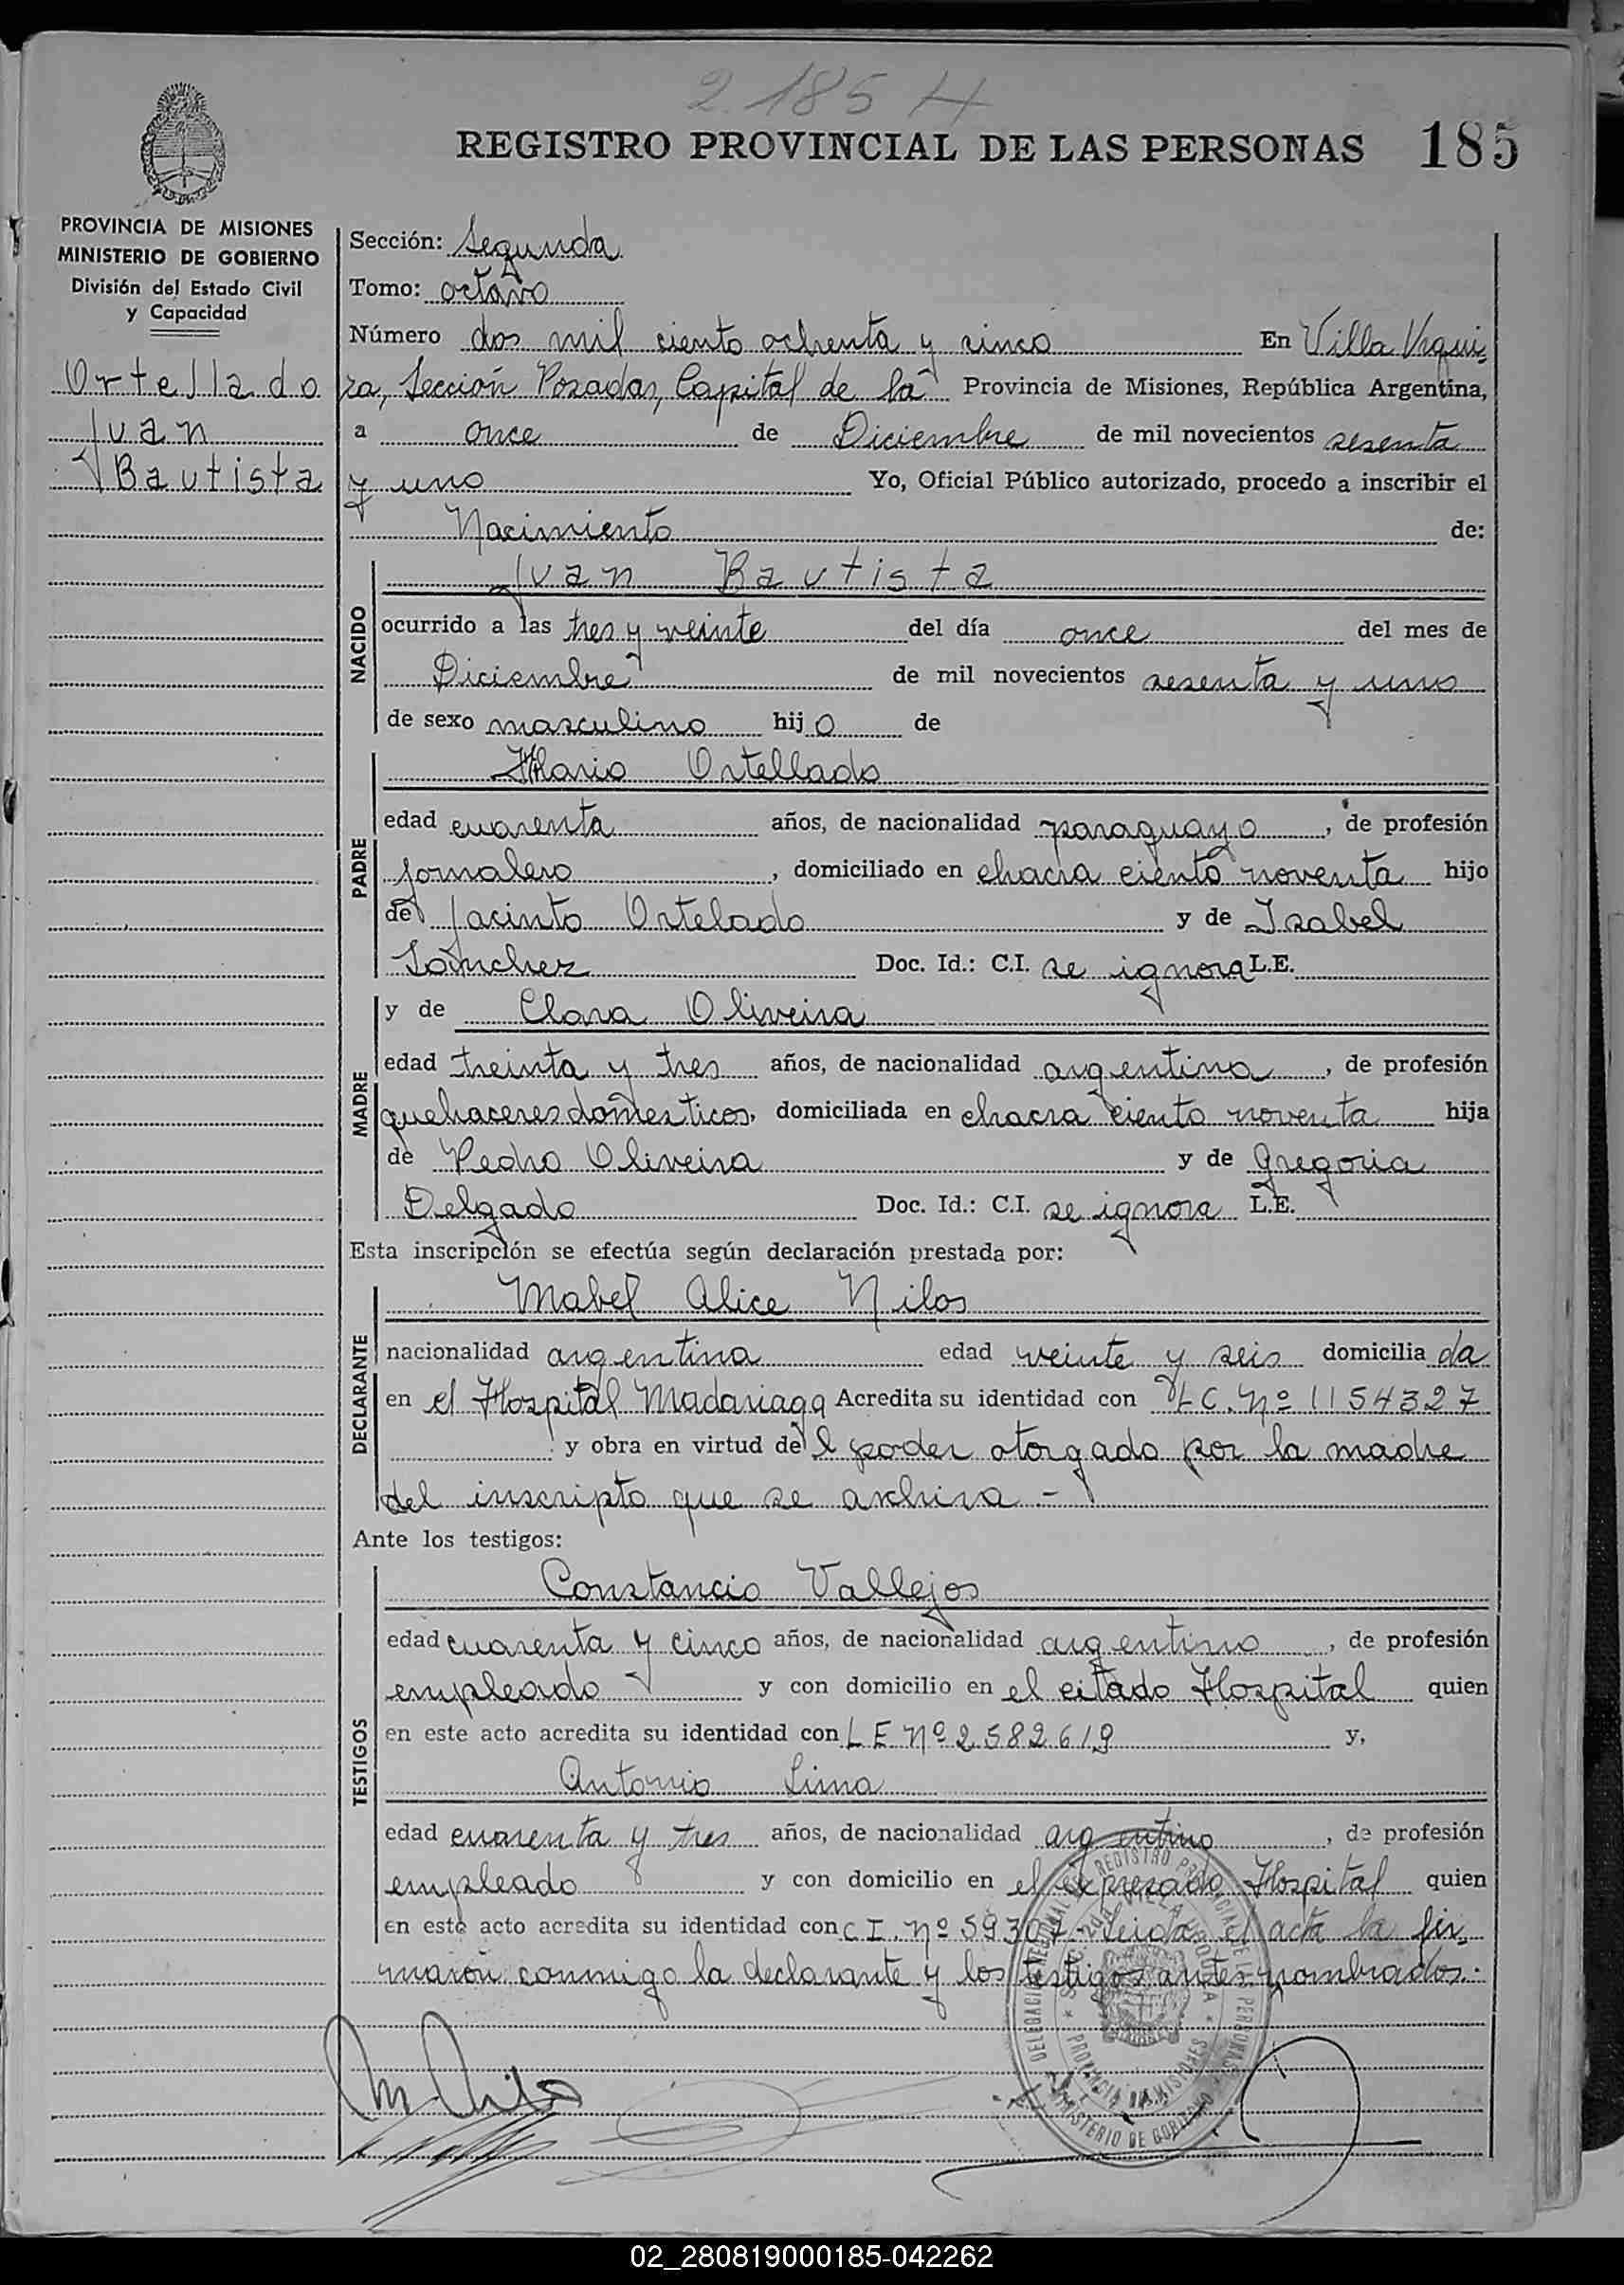 2185 H
REGISTRO PROVINCIAL DE LAS PERSONAS 185
PROVINCIA DE MISIONES
MINISTERIO DE GOBIERNO
División del Estado Civil
y Capacidad
Ortellado
Juan
Bautista
Sección: Segunda
Tomo: octavo
Número dos mil ciento ochenta y cinco En Villa Urqui-
za, Sección Posadas, Capital de la Provincia de Misiones, República Argentina,
a once de Diciembre de mil novecientos sesenta
y uno Yo, Oficial Público autorizado, procedo a inscribir el
Nacimiento de:
NACIDO
Juan Bautista
ocurrido a las tres y veinte del día once del mes de
Diciembre de mil novecientos sesenta y uno
de sexo masculino hijo de
PADRE
Ilario Ortellado
edad cuarenta años, de nacionalidad paraguayo, de profesión
jornalero, domiciliado en chacra ciento noventa hijo
de Jacinto Ortelado y de Isabel
Sánchez Doc. Id.: C.I. se ignora L.E.
MADRE
y de Clara Oliveira
edad treinta y tres años, de nacionalidad argentina, de profesión
quehaceres domesticos, domiciliada en chacra ciento noventa hija
de Pedro Oliveira y de Gregoria
Delgado Doc. Id.: C.I. se ignora L.E.
Esta inscripción se efectúa según declaración prestada por:
DECLARANTE
Mabel Alice Nilos
nacionalidad argentina edad veinte y seis domiciliada
en el Hospital Madariaga Acredita su identidad con L C. Nº 1154327
y obra en virtud del poder otorgado por la madre
del inscripto que se archiva -
Ante los testigos:
TESTIGOS
Constancio Vallejos
edad cuarenta y cinco años, de nacionalidad argentino, de profesión
empleado y con domicilio en el citado Hospital quien
en este acto acredita su identidad con L E Nº 2582619 y,
Antonio Lima
edad cuarenta y tres años, de nacionalidad argentino, de profesión
empleado y con domicilio en el expresado Hospital quien
en este acto acredita su identidad con C I. Nº 59307 - Leida el acta la fir-
maron conmigo la declarante y los testigos antes nombrados.-
DELEGACION REGIONAL REGISTRO PROVINCIAL DE LAS PERSONAS
MINISTERIO DE GOBIERNO
PROVINCIA DE MISIONES
02_280819000185-042262